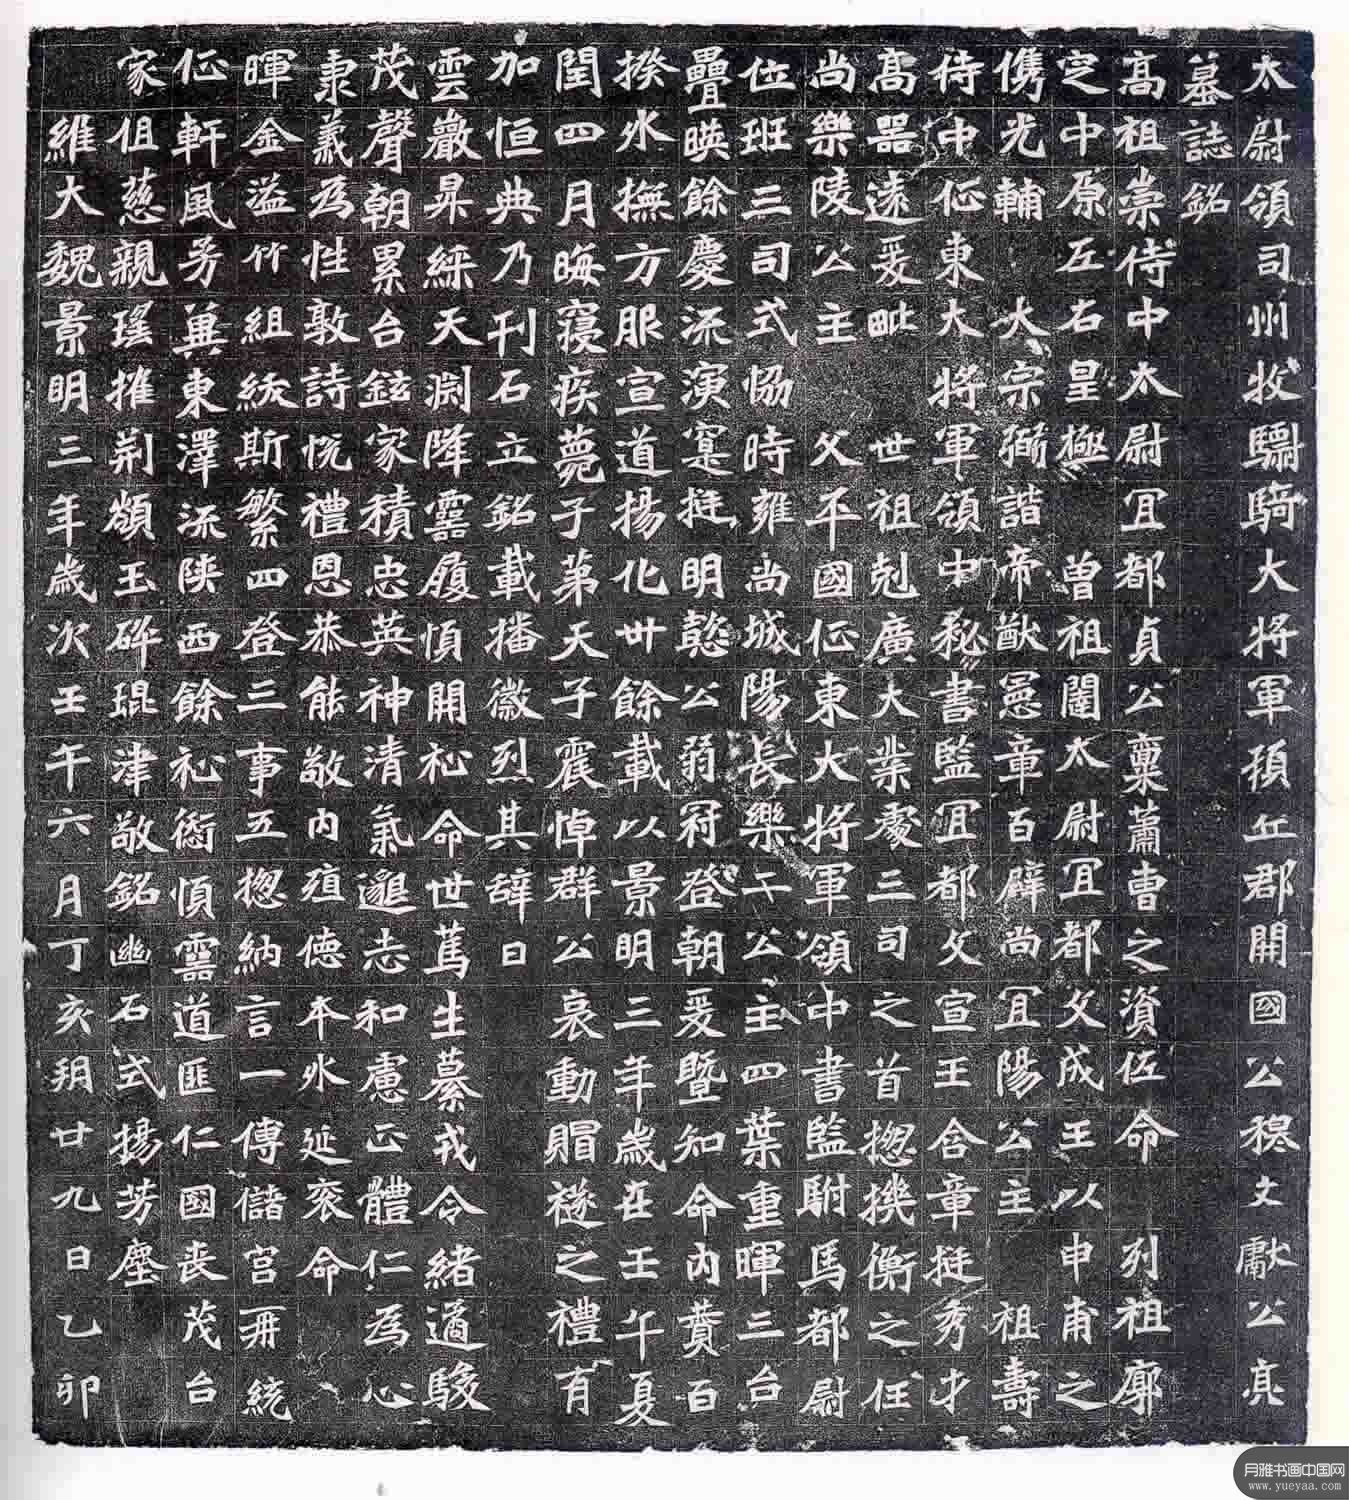 太尉領司州牧驃騎大將軍頓丘郡開國公穆文獻公亮
墓誌銘
高祖崇侍中太尉宜都貞公稟蕭曹之資佐命列祖廓
定中原左右皇極曾祖闥太尉宜都文成王以申甫之
儁光輔大宗弼諧帝猷憲章百辟尚宜陽公主祖壽
侍中征東大將軍領中秘書監宜都文宣王含章挺秀才
高器遠爰毗世祖剋廣大業處三司之首揔機衡之任
尚樂陵公主父平國征東大將軍領中書監駙馬都尉
位班三司式協時雍尚城陽長樂二公主四葉重暉三台
疊映餘慶流演寔挺明懿公弱冠登朝爰暨知命內賛百
揆外撫方服宣道揚化卅餘載以景明三年歲在壬午夏
閏四月晦寢疾薨于第天子震悼群公哀動賵襚之禮有
加恒典乃刊石立銘載播徽烈其辭曰
雲巖昇綵天淵降靈履順開祉命世篤生綦戎令緒遹駿
茂聲朝累台鉉家積忠英神清氣邈志和慮正體仁為心
秉義為性敦詩悅禮恩恭能敬內殖德本外延袞命
暉金溢竹組紱斯繁四登三事五揔納言一傅儲宮冊統
征軒風芳冀東澤流陝西餘祉愆順靈道匪仁國喪茂台
家徂慈親瑤摧荊頹玉碎琨津敬銘幽石式揚芳塵
維大魏景明三年歲次壬午六月丁亥朔廿九日乙卯
月雅书画中国网
www.yueyaa.com